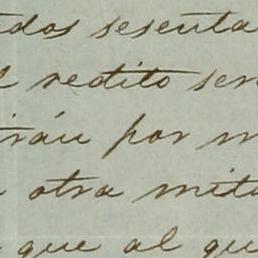 tdos sesenta
l redito ser
irán por m
a otra mita
que al qu